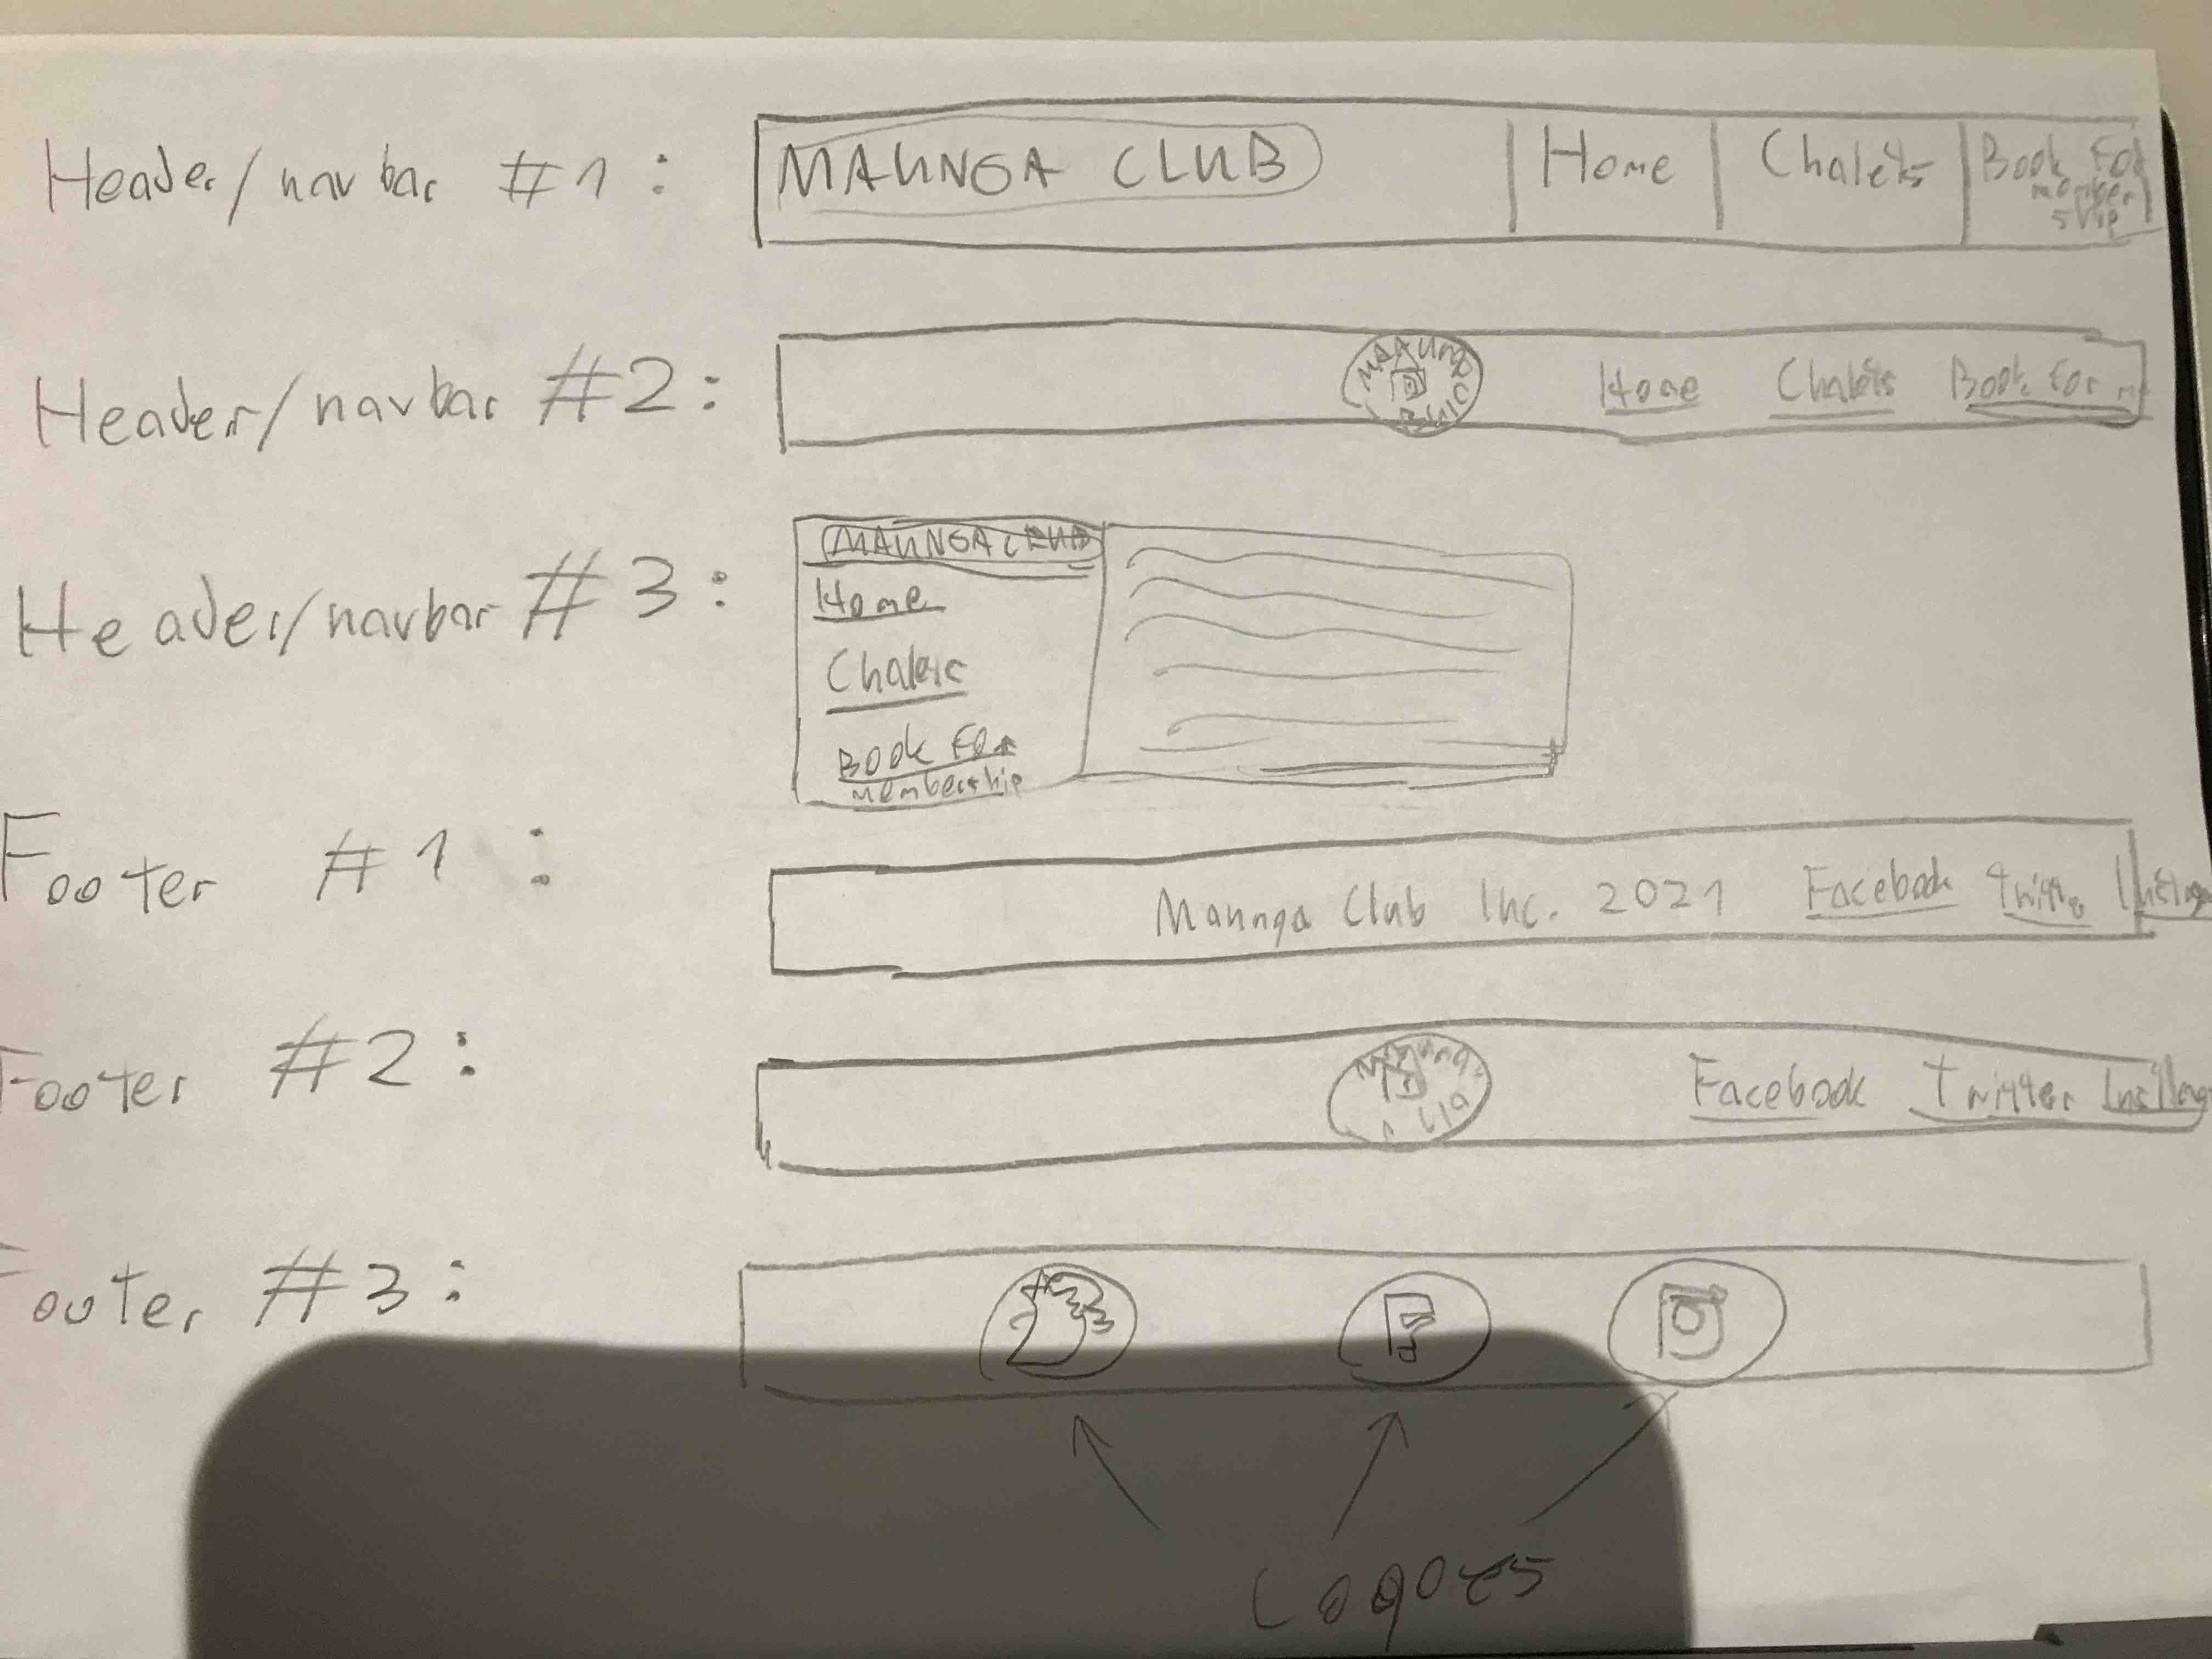 Header/navbar #1:
MAUNGA CLUB
Home
Chalets
Book For
member
ship
Header/navbar #2:
Home
Chalets
Book For m
Header/navbar #3:
MAUNGA CLUB
Home
Chalets
Book For
membership
Footer #1:
Maunga Club Inc. 2021
Facebook
Footer #2:
Facebook Twitter
Footer #3:
Logoes